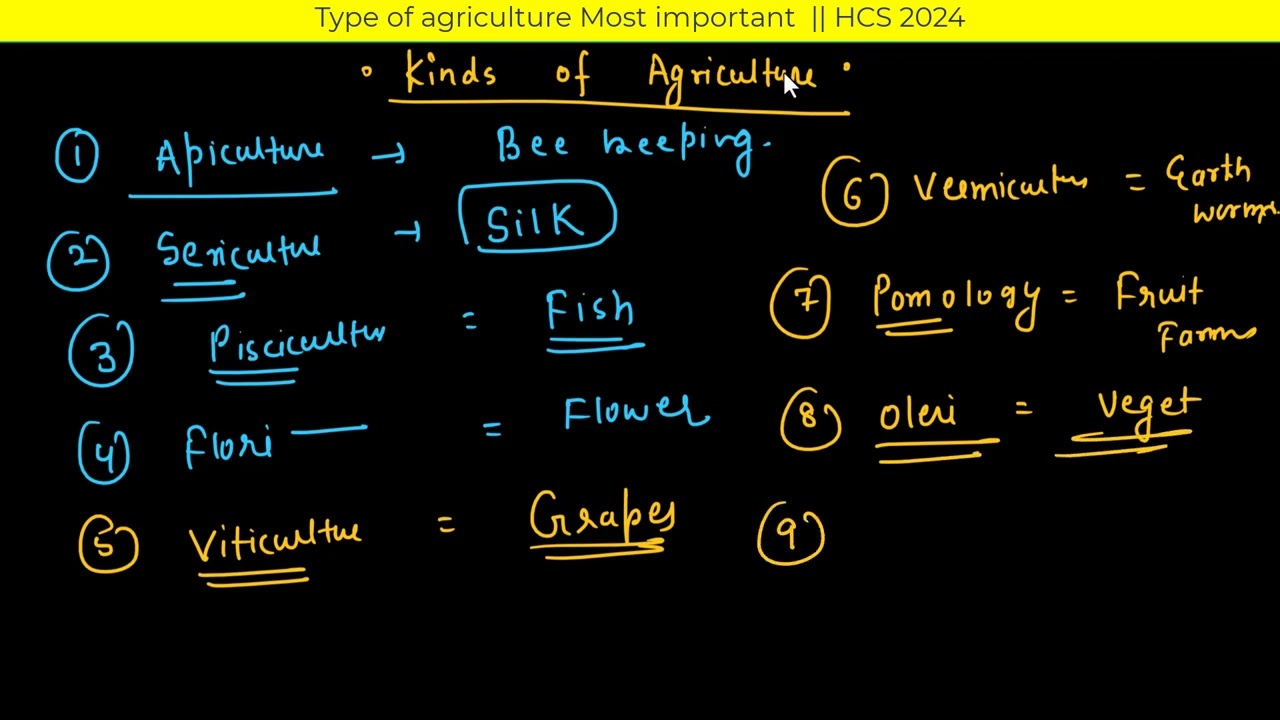 Type of agriculture Most important || HCS 2024
Kinds of Agriculture
1 Apiculture → Bee keeping.
2 Sericulture → Silk
3 Pisciculture = Fish
4 Flori — = Flower
5 Viticulture = Grapes
6 Vermiculture = Earth
worms
7 Pomology = Fruit
Farms
8 Oleri = Veget
9